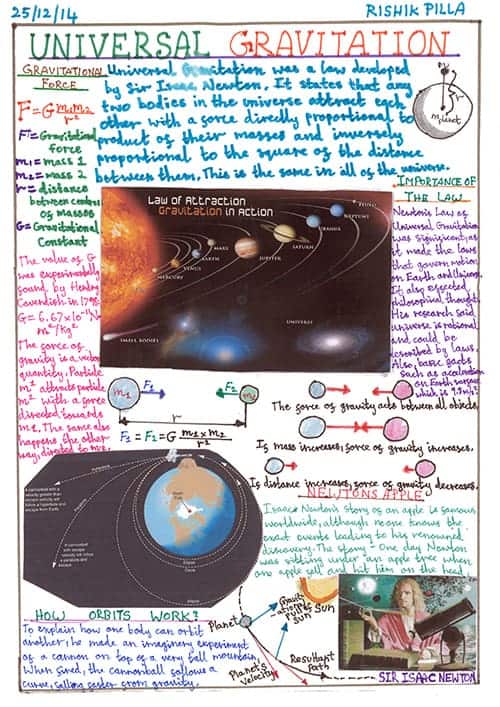 25/12/14
RISHIK PILLA
UNIVERSAL GRAVITATION
GRAVITATIONAL
FORCE
F=G m1m2
r²
F= Gravitational
force
m1= mass 1
m2= mass 2
r= distance
between centres
of masses
G= Gravitational
Constant
The value of G
was experimentally
found by Henry
Cavendish in
G= 6.67x10⁻¹¹N
m²/kg²
The force of
gravity is a vector
quantity. Particle
m² attracts particle
m² with a force
directed towards
m1. The same also
happens the other
way, directed to m2.
Universal Gravitation was a law developed
by Sir Isaac Newton. It states that any
two bodies in the universe attract each
other with a force directly proportional to
product of their masses and inversely
proportional to the square of the distance
between them. This is the same in all of the universe.
m
r
Mplanet
IMPORTANCE OF
THE LAW
Newton's Law of
Universal Gravitation
was significent, as
it made the laws
that govern motion
on Earth and Universe.
It also effected
philosophical thought.
His research said
universe is rational
and could be
described by laws.
Also, basic facts
such as acceleration
on Earth surface
which is 9.8 m/s²
Law of Attraction
Gravitation in Action
MERCURY
VENUS
EARTH
MARS
JUPITER
SATURN
URANUS
NEPTUNE
PLUTO
SMALL BODIES
UNIVERSE
m1
F1
F2
m2
r
F1 = F2 = G m1 x m2
r²
The force of gravity acts between all objects.
If mass increases, force of gravity increases.
If distance increases, force of gravity decreases.
NEWTONS APPLE
Isaac Newton's story of an apple is famous
worldwide, although no one knows the
exact events leading to his renowned
discovery. The story - One day Newton
was sitting under an apple tree where
an apple fell and hit him on the head
A cannonball with a
velocity greater than
escape velocity will
follow a hyperbola and
escape from Earth
A cannonball
with escape
velocity will follow
a parabola and
escape
Hyperbola
Parabola
Ellipse
Circle
Ellipse
HOW ORBITS WORK?
To explain how one body can orbit
another, he made an imaginery experiment
of a cannon on top of a very tall mountain.
When fired, the cannonball follows a
curve, falling faster from gravity.
Planet
Gravit-
ational
pull of
sun
Sun
Planet's
velocity
Resultant
path
SIR ISAAC NEWTON